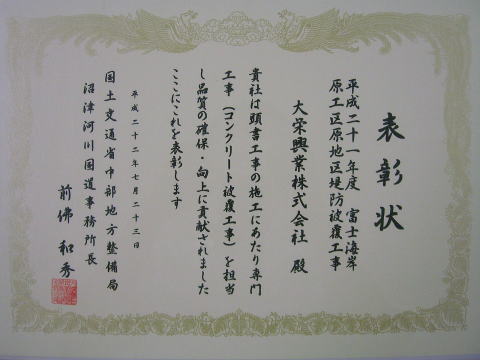 表彰状
平成二十一年度 富士海岸
原工区原地区堤防被覆工事
大栄興業株式会社 殿
貴社は頭書工事の施工にあたり専門
工事（コンクリート被覆工事）を担当
し品質の確保・向上に貢献されました
ここにこれを表彰します
平成二十二年七月二十三日
国土交通省中部地方整備局
沼津河川国道事務所長
前佛 和秀